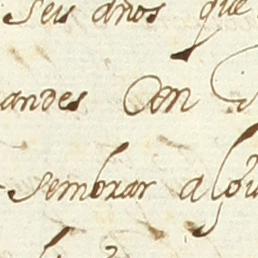 seis años que
andes con
sembrar algu